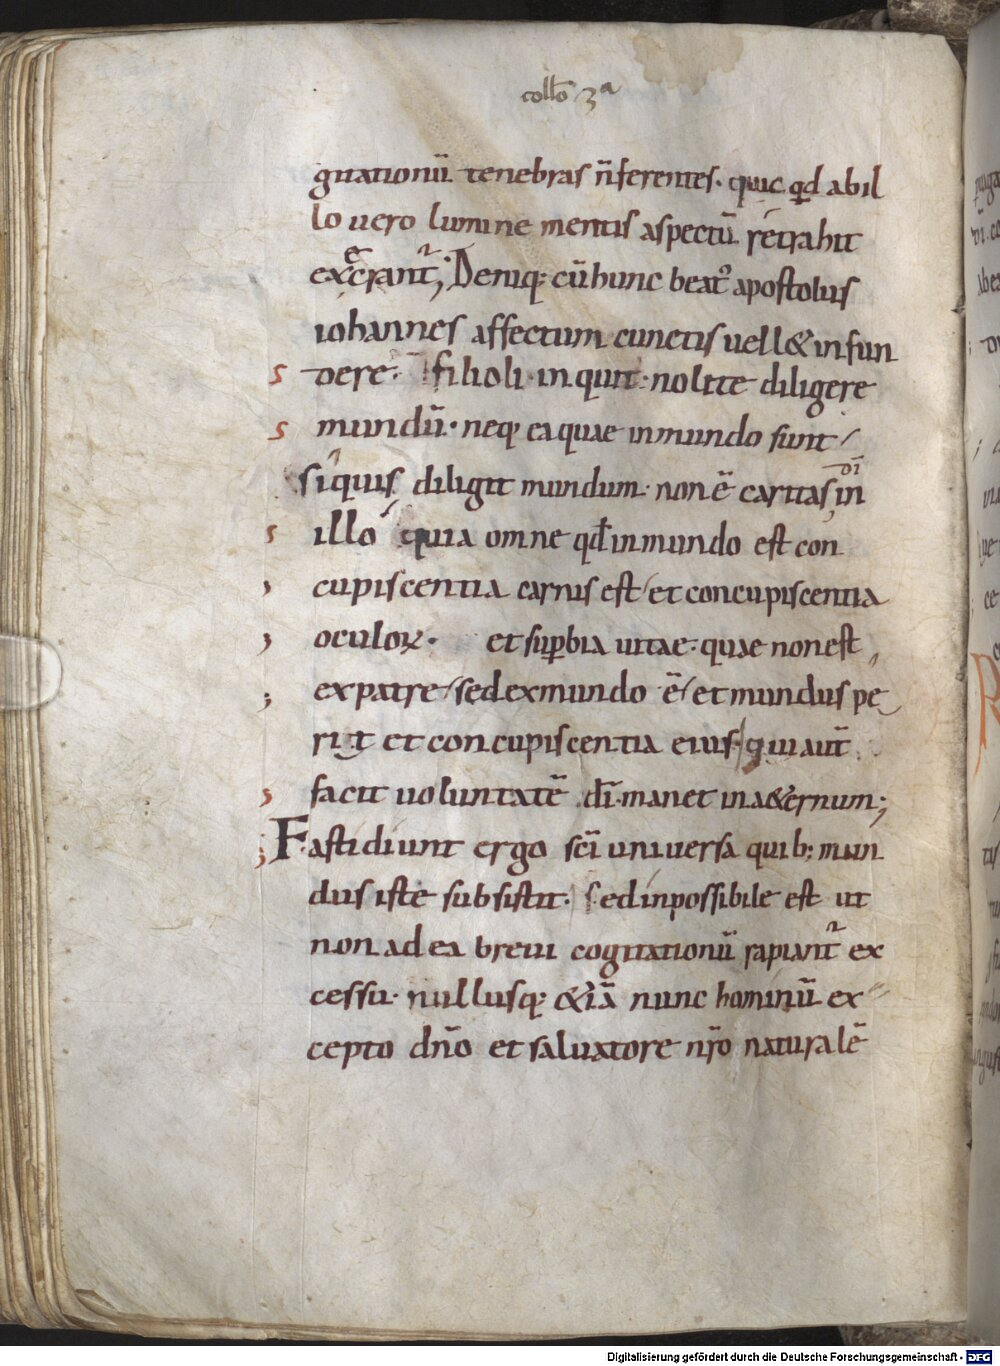 collõ 3ª
gitationũ tenebras ñferentes· quic qđ abil
lo uero lumine mentis aspectũ retrahit
execrant᷑; Deniq; cũ hunc beat᷒ apostolus
iohannes affectum cunctis uell& infun
dere· filioli· inquit· nolite diligere
mundũ· neq; ea quae inmundo sunt/
siquis diligit mundum· non ẽ caritas dī in
illo quia omne qđ inmundo est con
cupiscentia carnis est/ et concupiscentia
oculoꝝ· et suꝑbia uitae· quae non est
expatre/ sed exmundo ẽ/ et mundus pe
rit et concupiscentia eius· qui aut̃
facit uoluntatẽ dī· manet in a&ernum;
Fastidiunt ergo sc̃i uniuersa quib; mun
dus iste subsistit· Sed inpossibile est ut
non ad ea breui cogitationũ rapiant᷑ ex
cessu· nullusq; &iã nunc hominũ ex
cepto dño et saluatore nr̃o naturalẽ
Digitalisierung gefördert durch die Deutsche Forschungsgemeinschaft - DFG